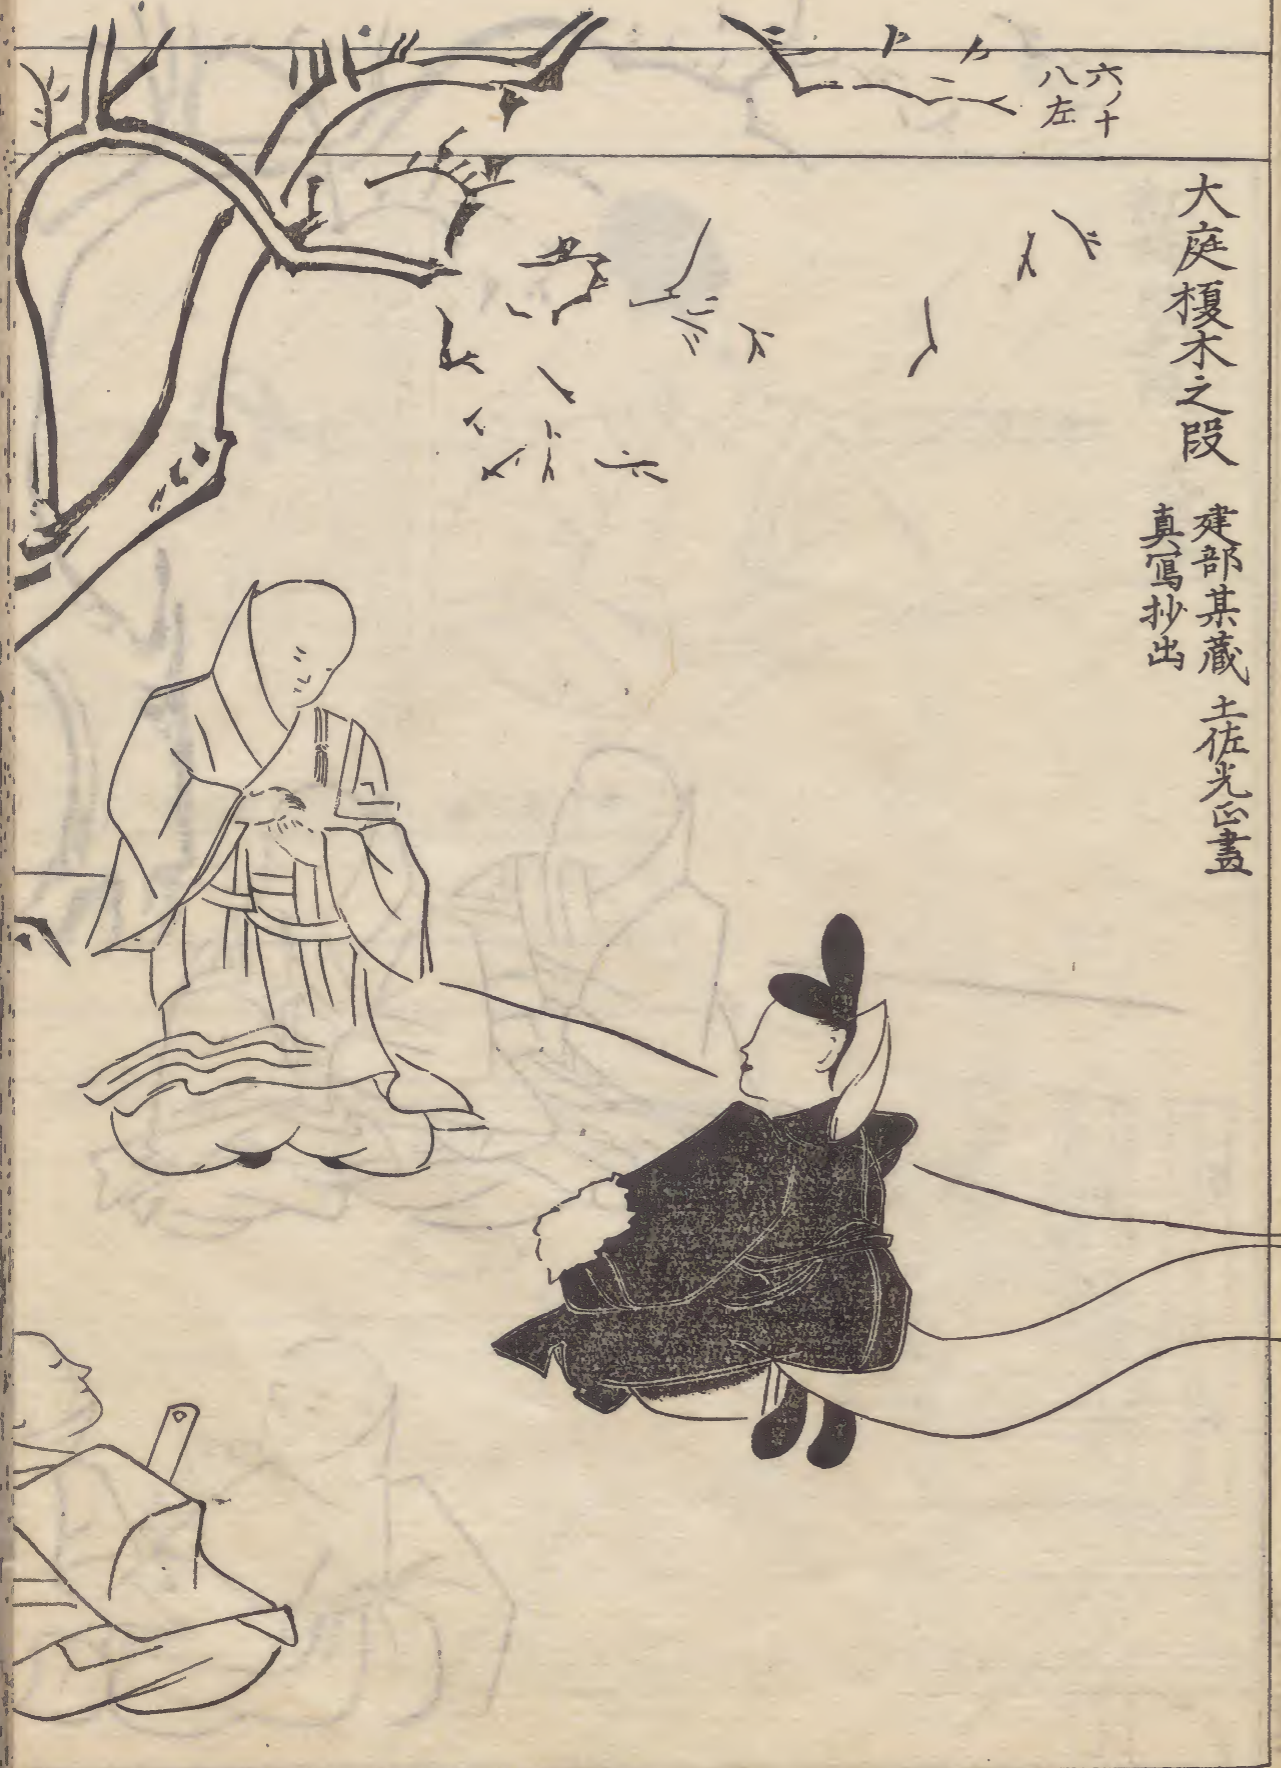 六ノ十
八左
大庭榎木之段
建部某蔵 土佐光正畫
真寫抄出